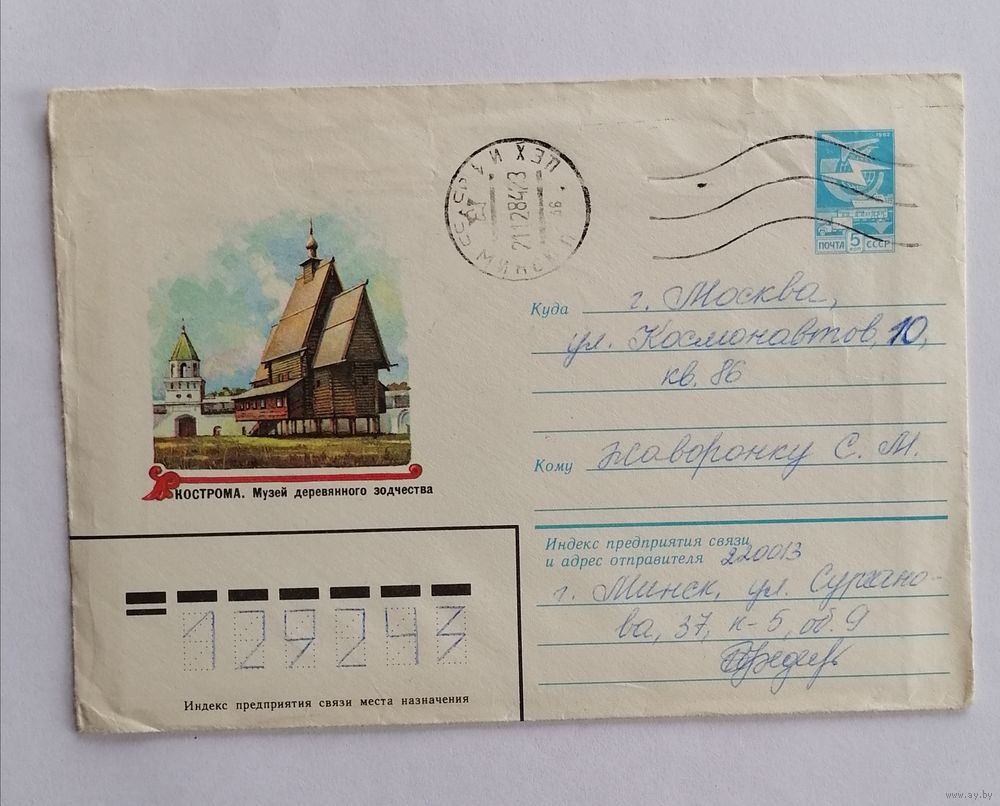 1982
ПОЧТА 5 КОП СССР
ЦЕХ И
МИНСК П
211284 23
Куда г. Москва,
ул. Космонавтов, 10,
кв. 86
Кому Жаворонку С. М.
КОСТРОМА. Музей деревянного зодчества
Индекс предприятия связи
и адрес отправителя 220013
г. Минск, ул. Сургано-
ва, 37, к-5, об. 9
129243
Индекс предприятия связи места назначения
www.ay.by